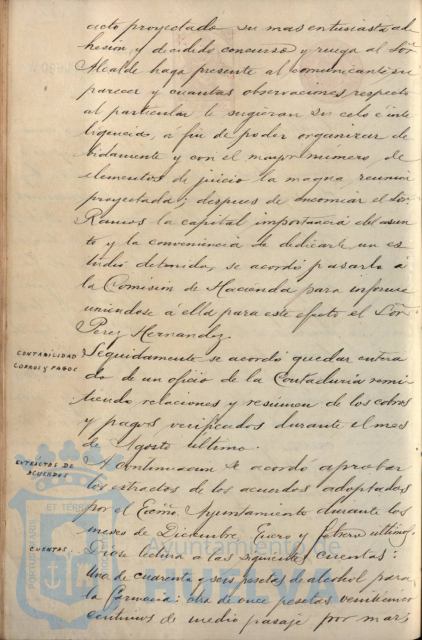 acto proyectado su mas entusiasta ad-
hesión y decidido concurso y ruega al Señor
Alcalde haga presente al comunicante su
parecer y cuantas observaciones respecto
al particular le sugieran su celo é inte
ligencia, á fin de poder organizar de
bidamente y con el mayor número de
elementos de juicio la magna reunión
proyectada; despues de encomiar el Sor.
Ramos la capital importancia del asun
to y la conveniencia de dedicarle un es
tudio detenido, se acordó pasarlo á
la Comisión de Hacienda para informe
uniéndose á ella para este efecto el Sor.
Perez Hernandez.
CONTABILIDAD
COBROS Y PAGOS
Seguidamente se acordó quedar entera
do de un oficio de la Contaduría remi
tiendo relaciones y resúmen de los cobros
y pagos verificados durante el mes
de Agosto último.
EXTRACTOS DE
ACUERDOS
A continuacion se acordó aprobar
los extractos de los acuerdos adoptados
por el Excmo. Ayuntamiento durante los
meses de Diciembre, Enero y Febrero últimos.
CUENTAS
Diose lectura a las siguientes cuentas:
Una de cuarenta y seis pesetas de alcohol para
la farmacia: otra de once pesetas veinticinco
centimos de medio pasaje por mar
Ayuntamiento de
HUELVA